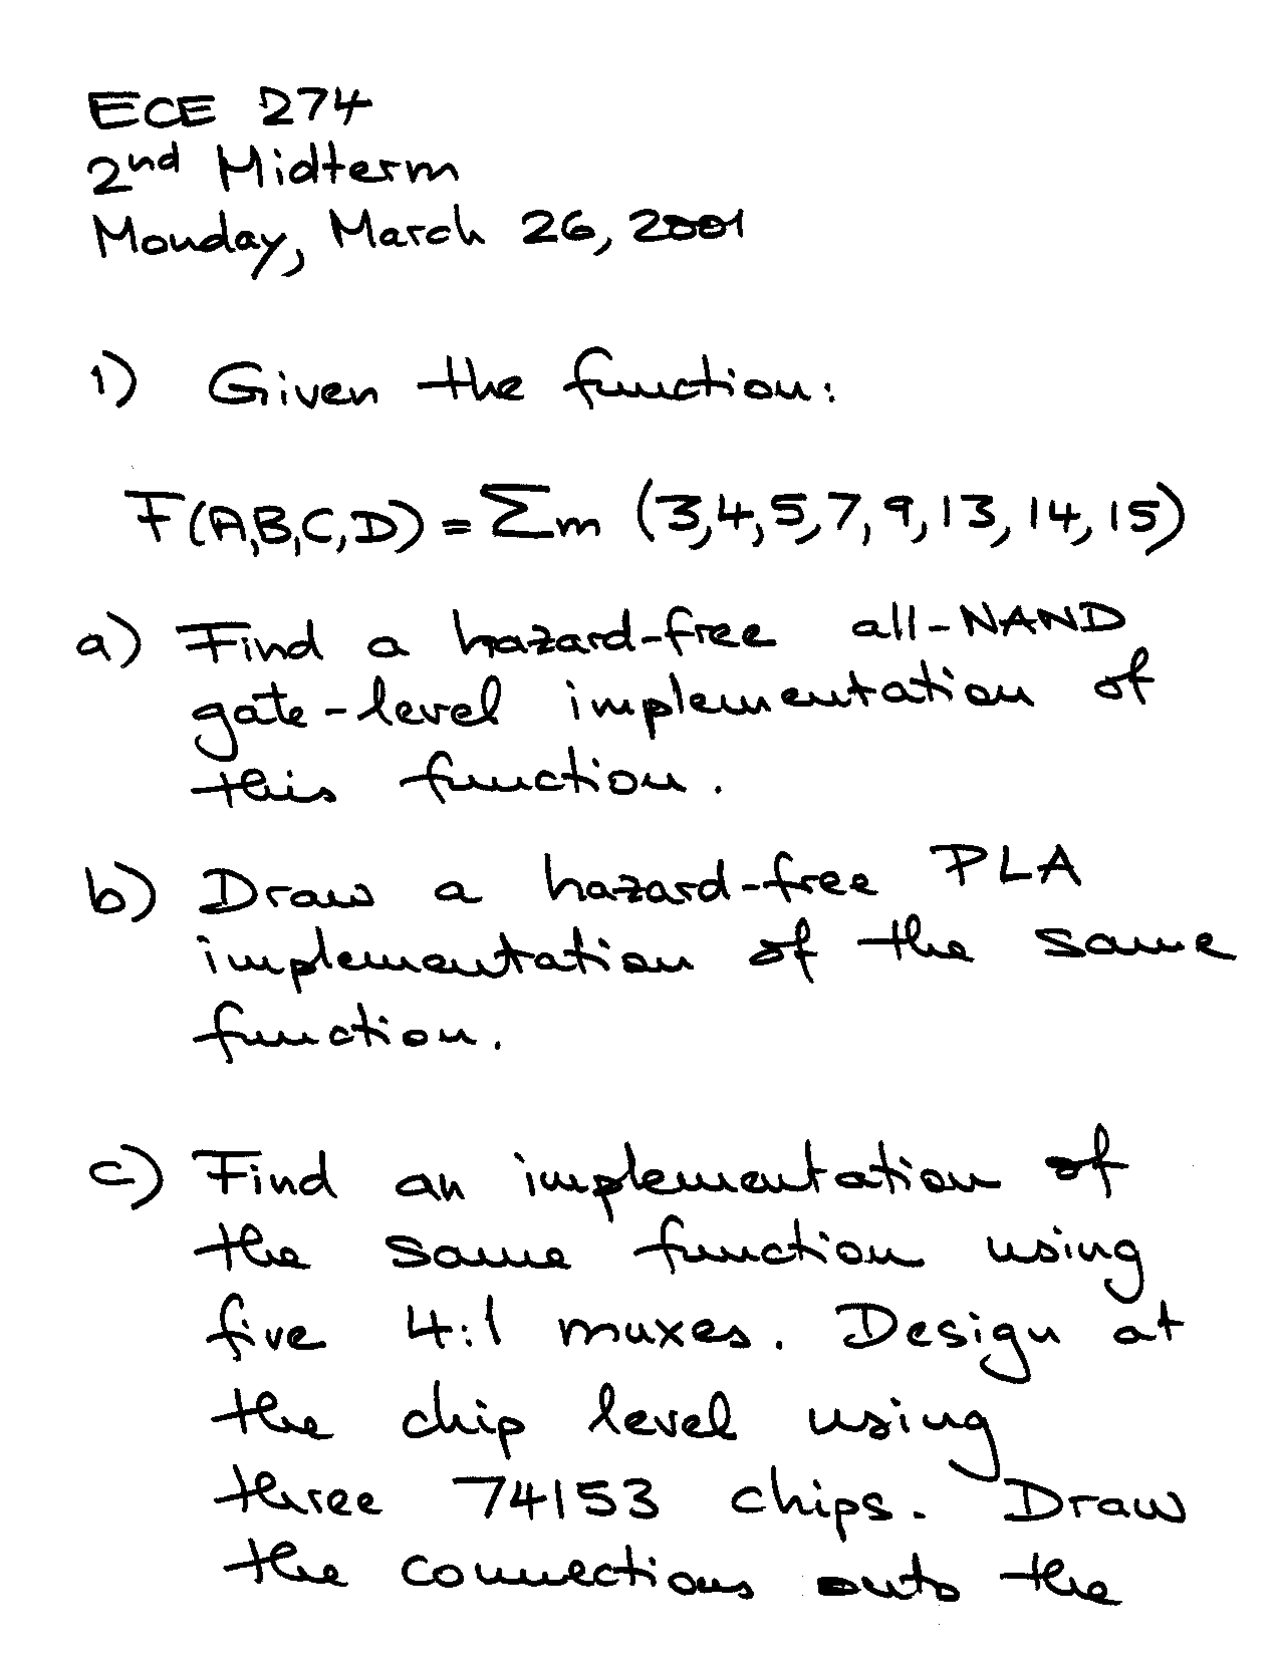 ECE 274
2nd Midterm
Monday, March 26, 2001
1) Given the function:
F(A,B,C,D) = Σm (3,4,5,7,9,13,14,15)
a) Find a hazard-free all-NAND
gate-level implementation of
this function.
b) Draw a hazard-free PLA
implementation of the same
function.
c) Find an implementation of
the same function using
five 4:1 muxes. Design at
the chip level using
three 74153 chips. Draw
the connections onto the